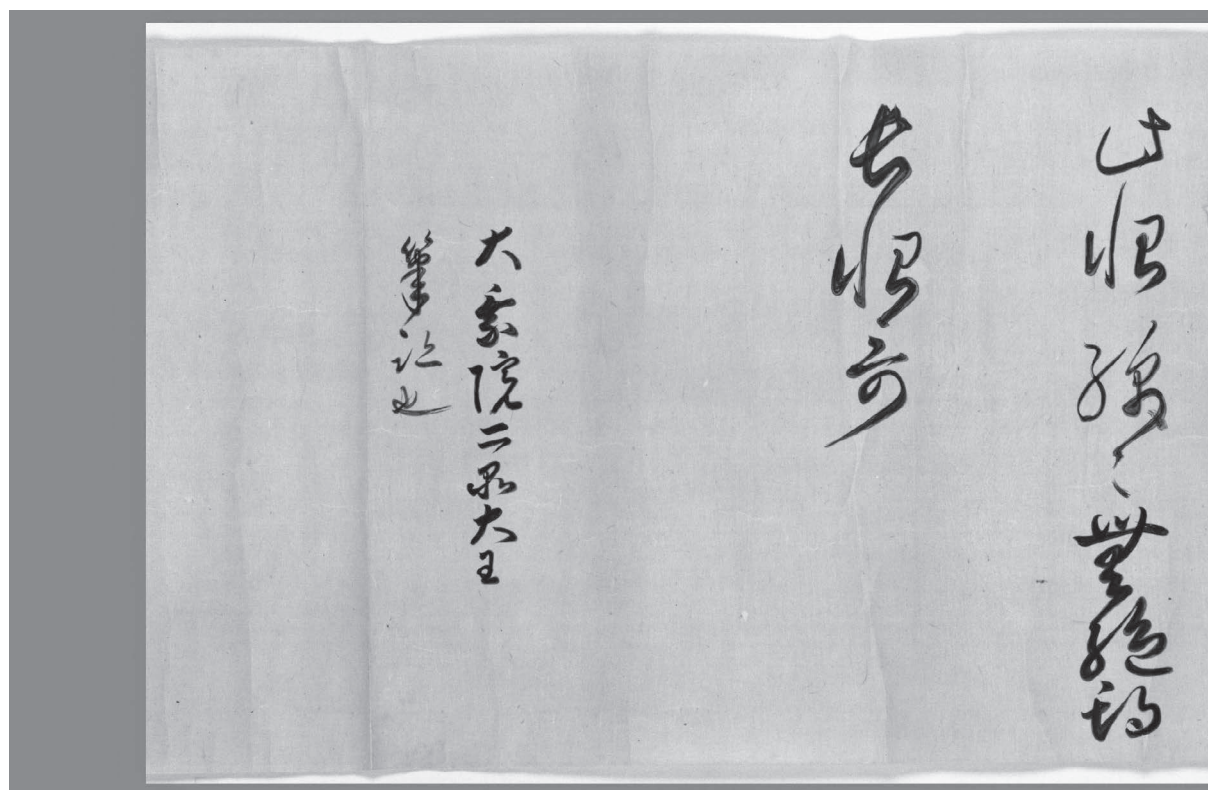 此恨綿々無絶期
長恨哥
大乗院二品大王
筆跡也